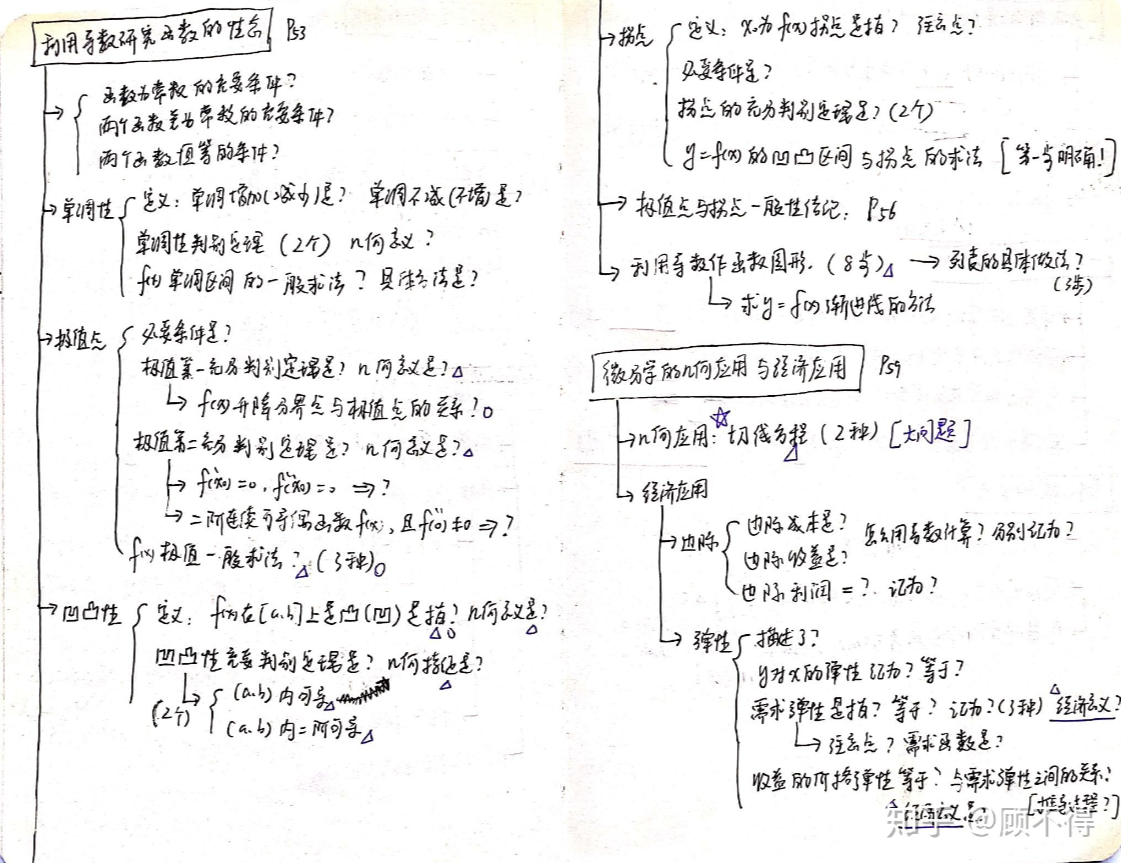 利用导数研究函数的性态 P53
函数为常数的充要条件?
两个函数差为常数的充要条件?
两个函数恒等的条件?
单调性
定义: 单调增加(减少)是? 单调不减(不增)是?
单调性判别定理 (2个) 几何意义?
f(x)单调区间的一般求法? 具体方法是?
极值点
必要条件是?
极值第一充分判别定理是? 几何意义是?
f(x)升降分界点与极值点的关系?
极值第二充分判别定理是? 几何意义是?
f'(x0)=0, f''(x0)=0 ⇒ ?
二阶连续可导偶函数f(x), 且f''(0)≠0 ⇒ ?
f(x)极值一般求法? (3种)
凹凸性
定义: f(x)在[a.b]上是凸(凹)是指? 几何意义是?
凹凸性充要判别定理是? 几何特征是?
(2个)
(a.b)内可导
(a.b)内二阶可导
拐点
定义: x0为f(x)拐点是指? 注意点?
必要条件是?
拐点的充分判别定理是? (2个)
y=f(x)的凹凸区间与拐点的求法 [第一步明确!]
极值点与拐点一般性结论: P56
利用导数作函数图形. (8步) → 列表的具体做法?
(3步)
求y=f(x)渐进线的方法
微分学的几何应用与经济应用 P59
几何应用: 切线方程 (2种) [大问题]
经济应用
边际
边际成本是?
边际收益是?
怎么用导数计算? 分别记为?
边际利润=? 记为?
弹性
描述了?
y对x的弹性 记为? 等于?
需求弹性是指? 等于? 记为? (3种) 经济意义?
注意点? 需求函数是?
收益的价格弹性等于? 与需求弹性之间的关系?
[推导过程?]
经济意义是?
知乎 @顾不得